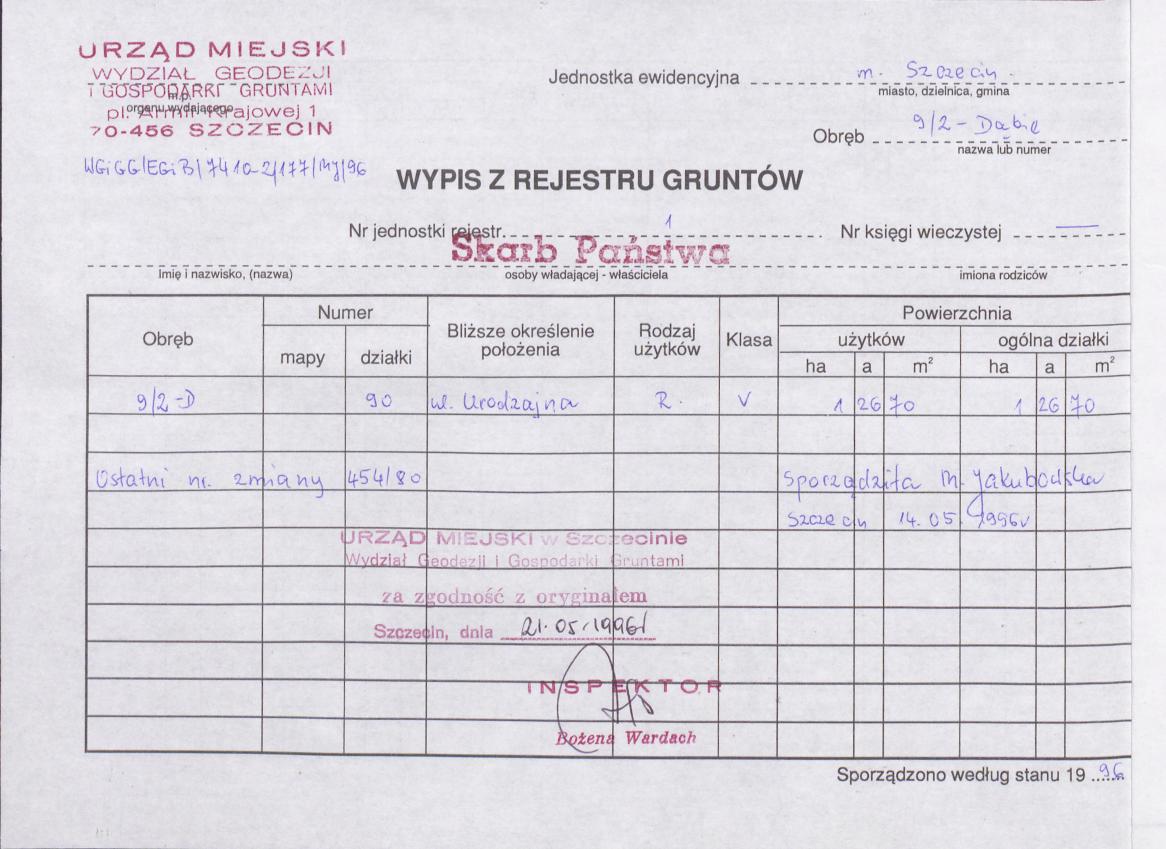 URZĄD MIEJSKI
WYDZIAŁ GEODEZJI
I GOSPODARKI GRUNTAMI
m.p.
organu wydającego
pl. Armii Krajowej 1
70-456 SZCZECIN
WGiGG/EGiB/7410-2/177/MJ/96
Jednostka ewidencyjna m. Szczecin
miasto, dzielnica, gmina
Obręb 9/2 - Dąbie
nazwa lub numer
WYPIS Z REJESTRU GRUNTÓW
Nr jednostki rejestr. 1 Nr księgi wieczystej —
Skarb Państwa
Imię i nazwisko, (nazwa) osoby władającej - właściciela imiona rodziców
Obręb Numer mapy działki Bliższe określenie położenia Rodzaj użytków Klasa Powierzchnia użytków ha a m² ogólna działki ha a m²
9/2-D 90 ul. Urodzajna R V 1 26 70 1 26 70
Ostatni nr. zmiany 454/80 Sporządziła M. Jakubowska
Szczecin 14.05.1996r
URZĄD MIEJSKI w Szczecinie
Wydział Geodezji i Gospodarki Gruntami
za zgodność z oryginałem
Szczecin, dnia 21.05.1996r
INSPEKTOR
Bożena Wardach
Sporządzono według stanu 19 96